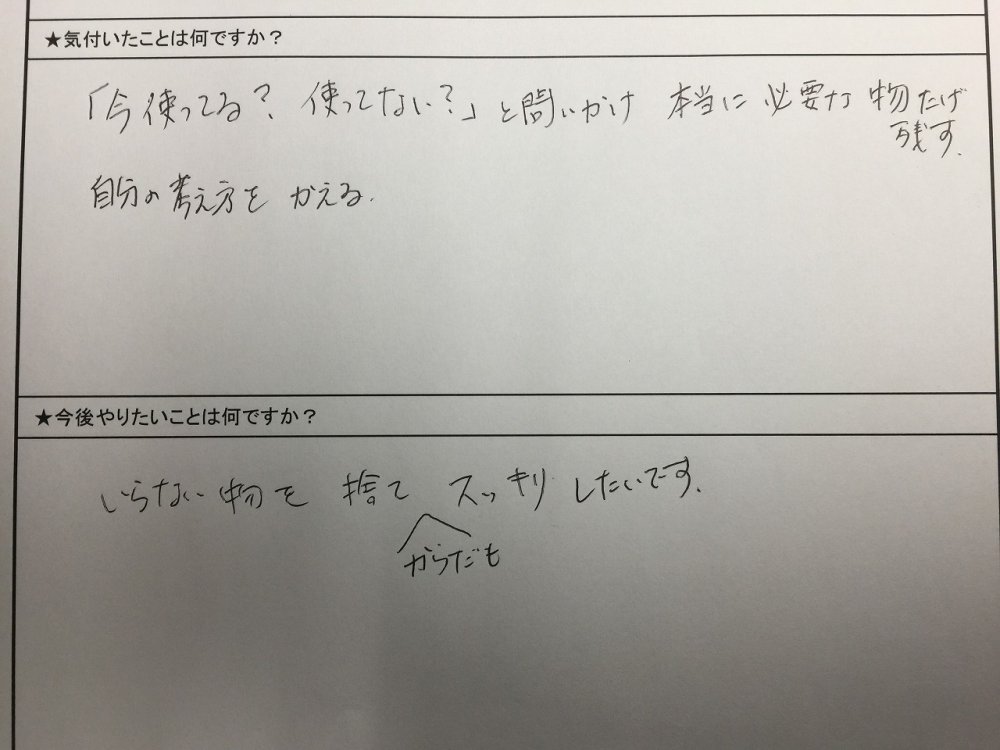 ★気付いたことは何ですか？
「今使ってる？ 使ってない？」と問いかけ 本当に 必要な 物だけ
残す.
自分の考え方を かえる.
★今後やりたいことは何ですか？
いらない物を 捨て スッキリ したいです.
からだも